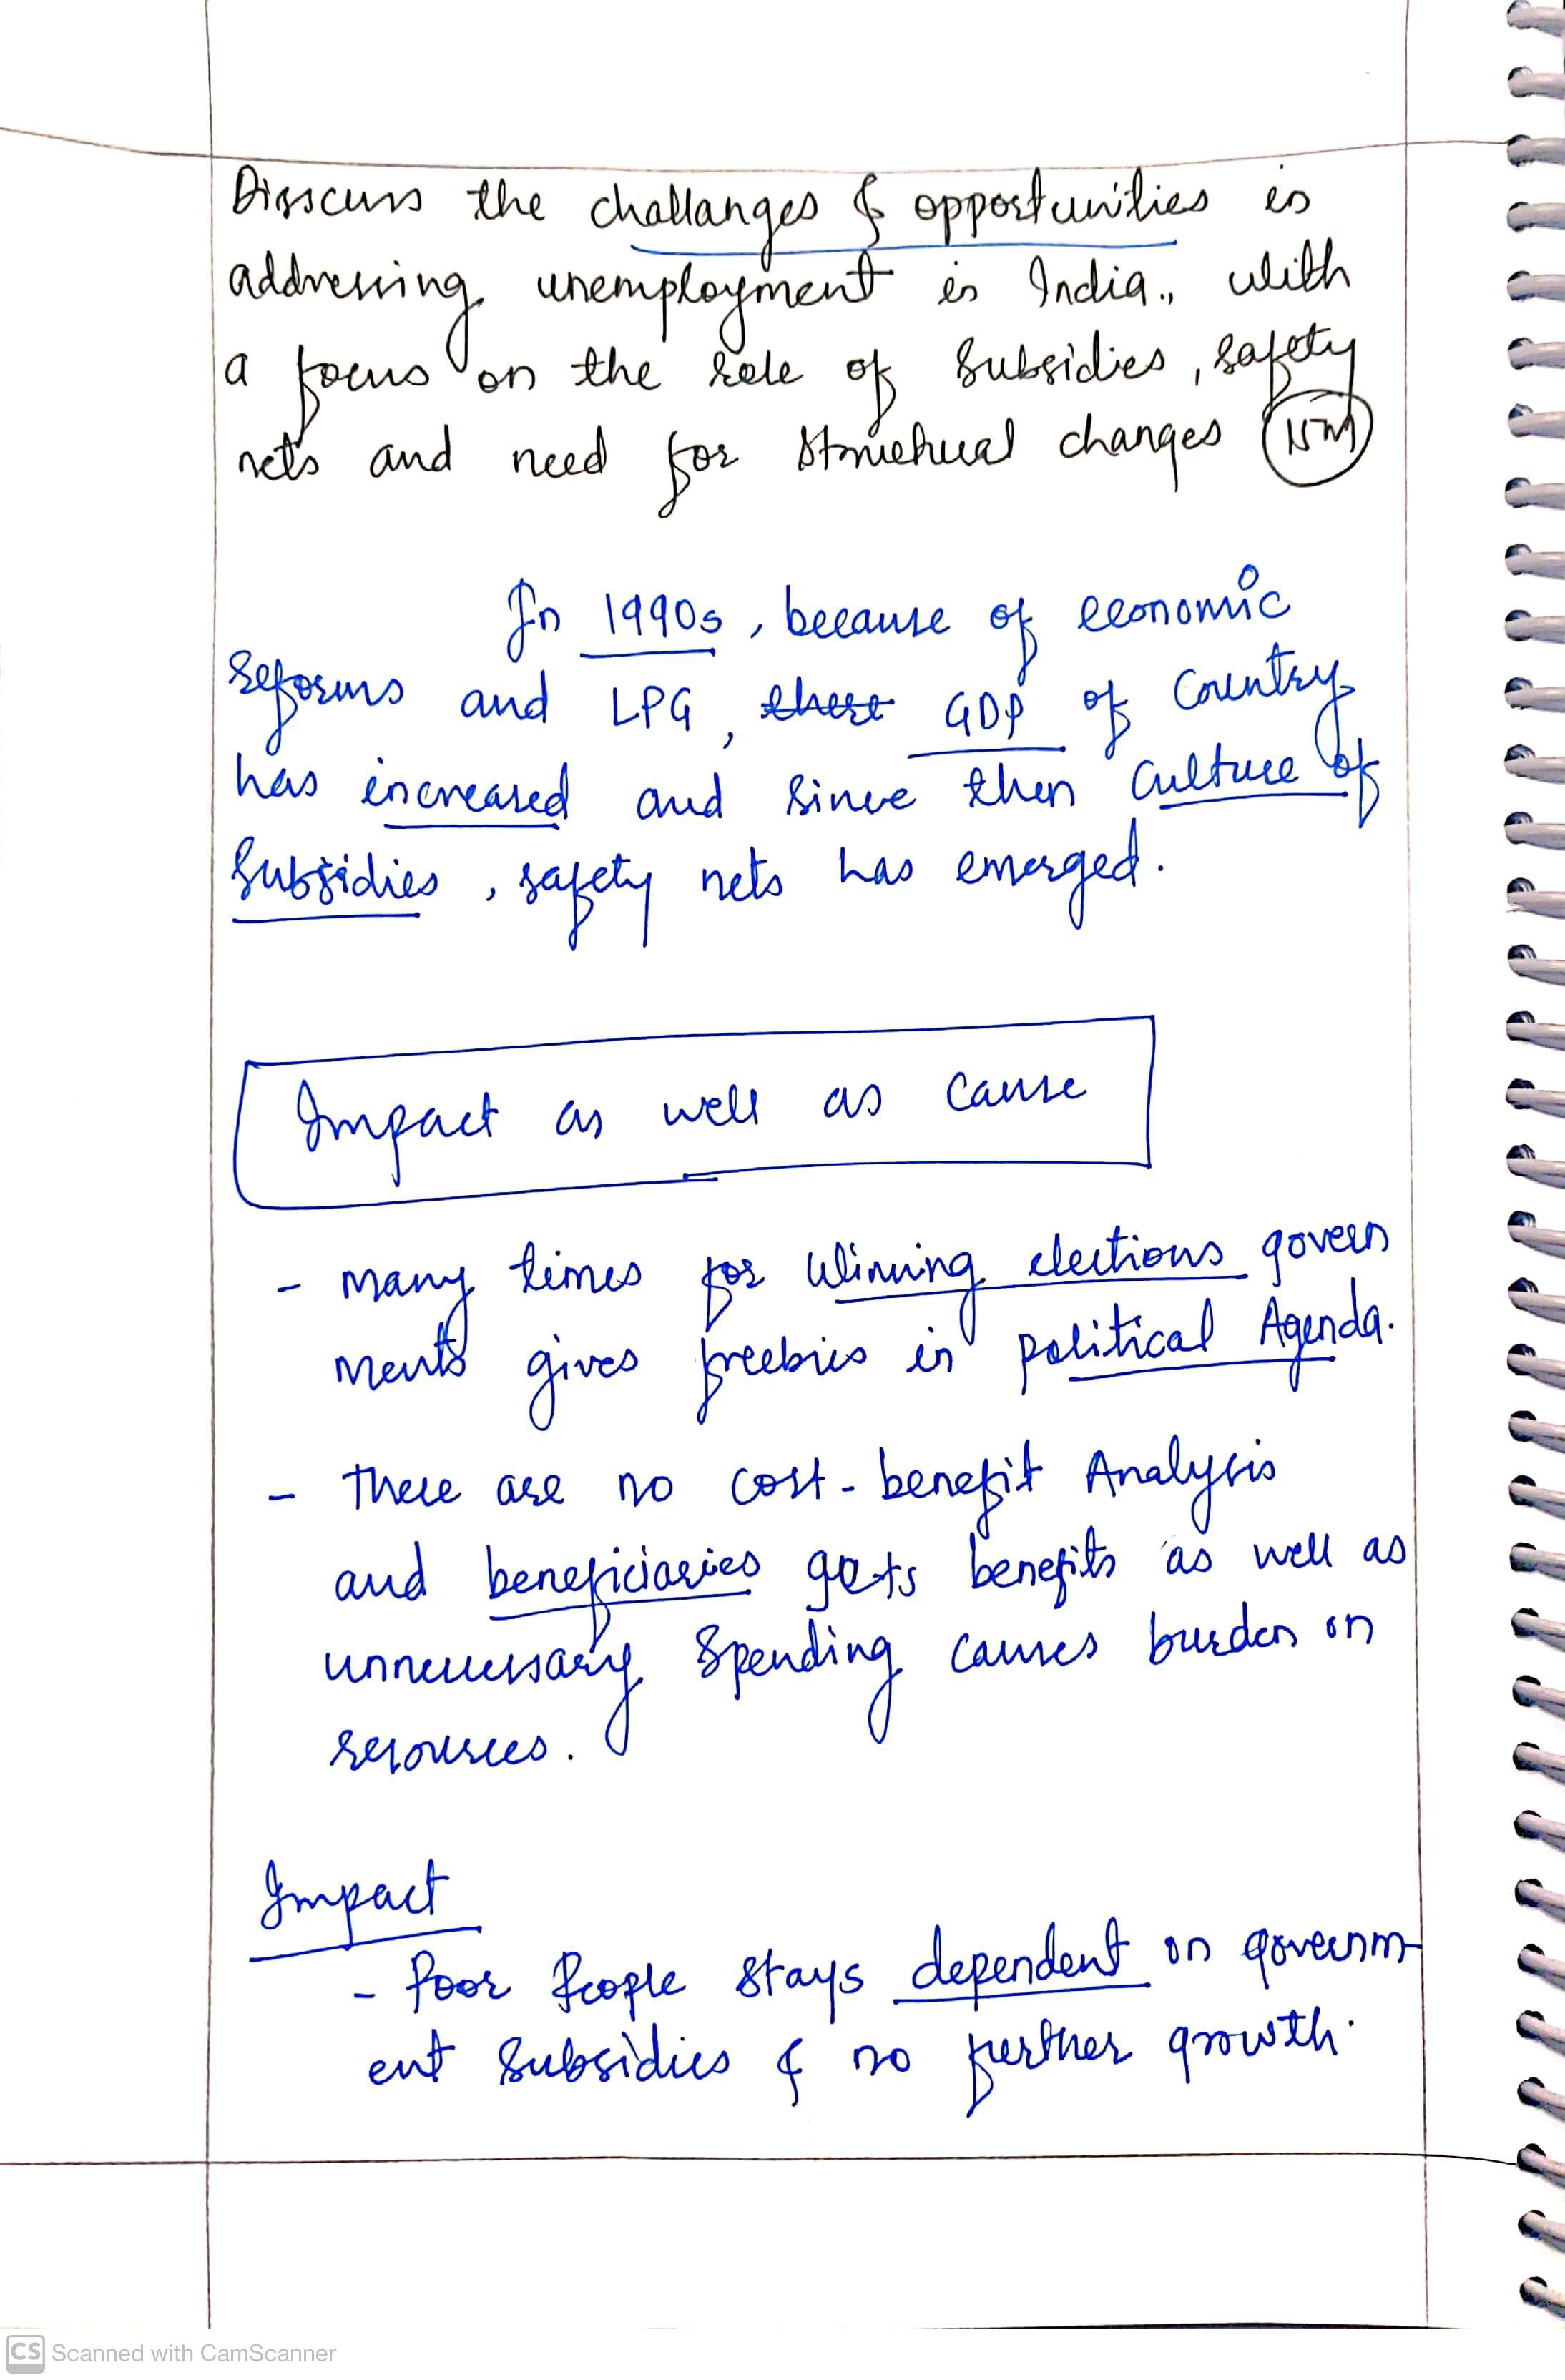 Disscuss the challanges & opportunities in
addressing unemployment in India., with
a focus on the role of subsidies, safety
nets and need for structural changes 15M
In 1990s, because of economic
reforms and LPG, there GDP of Country
has increased and since then culture of
subsidies, safety nets has emerged.
Impact as well as cause
- many times for winning elections govern
ments gives freebies in political Agenda.
- there are no cost-benefit Analysis
and beneficiaries gets benefits as well as
unnecessary spending causes burden on
resources.
Impact
- Poor People stays dependent on governm-
ent subsidies & no further growth.
CS Scanned with CamScanner